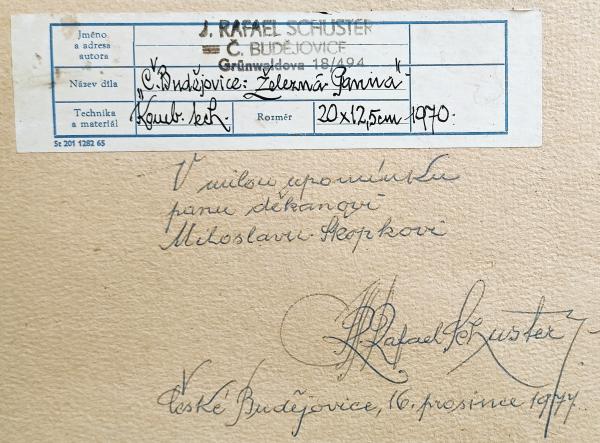 Jméno
a adresa
autora
J. RAFAEL SCHUSTER
Č. BUDĚJOVICE
Grünwaldova 18/494
Název díla
„Č. Budějovice: Železná Panna“
Technika
a materiál
Komb. tech.
Rozměr
20x12,5cm 1970.
St 201 1282 65
V milou upomínku
panu děkanovi
Miloslavu Skopkovi
J. Rafael Schuster
České Budějovice, 16. prosince 1977.